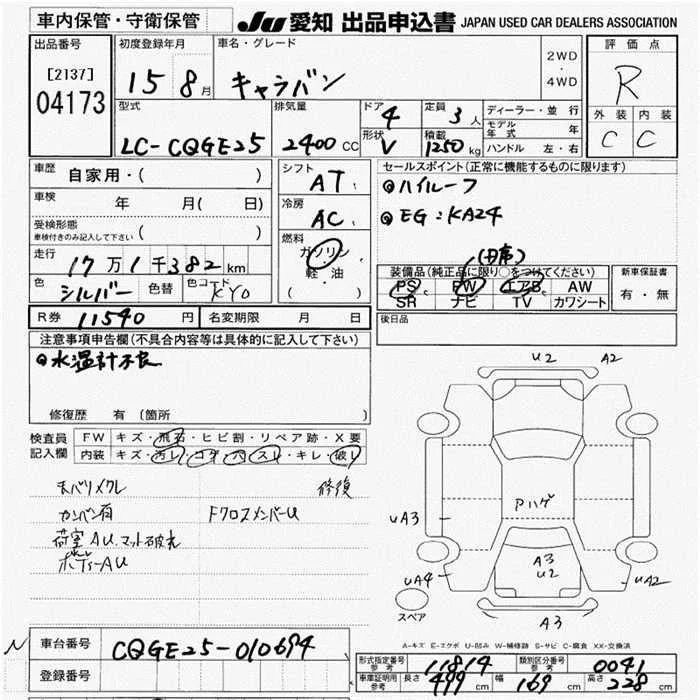 車内保管・守衛保管 JU 愛知 出品申込書 JAPAN USED CAR DEALERS ASSOCIATION
出品番号 初度登録年月 車名・グレード 2WD・4WD 評価点
[2137] 04173 15 8月 キャラバン R
型式 排気量 ドア 4 定員 3人 ディーラー・並行 外装 内装
LC-CQGE25 2400CC 形状 V 積載 1250kg モデル年式 年 C C
ハンドル 左・右
車歴 自家用・( ) シフト AT セールスポイント(正常に機能するものに限ります)
車検 年 月( 日) 冷房 AC ハイルーフ
受検形態 車検付きのみ記入して下さい ( ) EG:KA24
走行 17万1千382km 燃料 ガソリン・軽油 ( )
色 シルバー 色替 色コード KY0
装備品(純正品に限り○をつけてください) 新車保証書
PS PW エアB AW 有・無
SR ナビ TV カワシート
R券 11540円 名変期限 月 日 後日品
注意事項申告欄(不具合内容等は具体的に記入して下さい)
水温計不良
修復歴 有(箇所 )
検査員記入欄 FW キズ・飛石・ヒビ割・リペア跡・X要
内装 キズ・汚レ・コゲ・穴・スレ・キレ・破レ
修復
カンバン有 FクロスメンバーU
荷室AU、マット破れ
ボデーAU
U2 A2
Pハゲ
UA3
A3
U2
UA4 UA2
スペア A3
A-キズ E-エクボ U-凹み W-補修跡 S-サビ C-腐食 XX-交換済
N 車台番号 CQGE25-010694
登録番号
形式指定番号 参考 11814 類別区分番号 参考 0041
車庫証明用 参考 長さ 499cm 幅 169cm 高さ 228cm